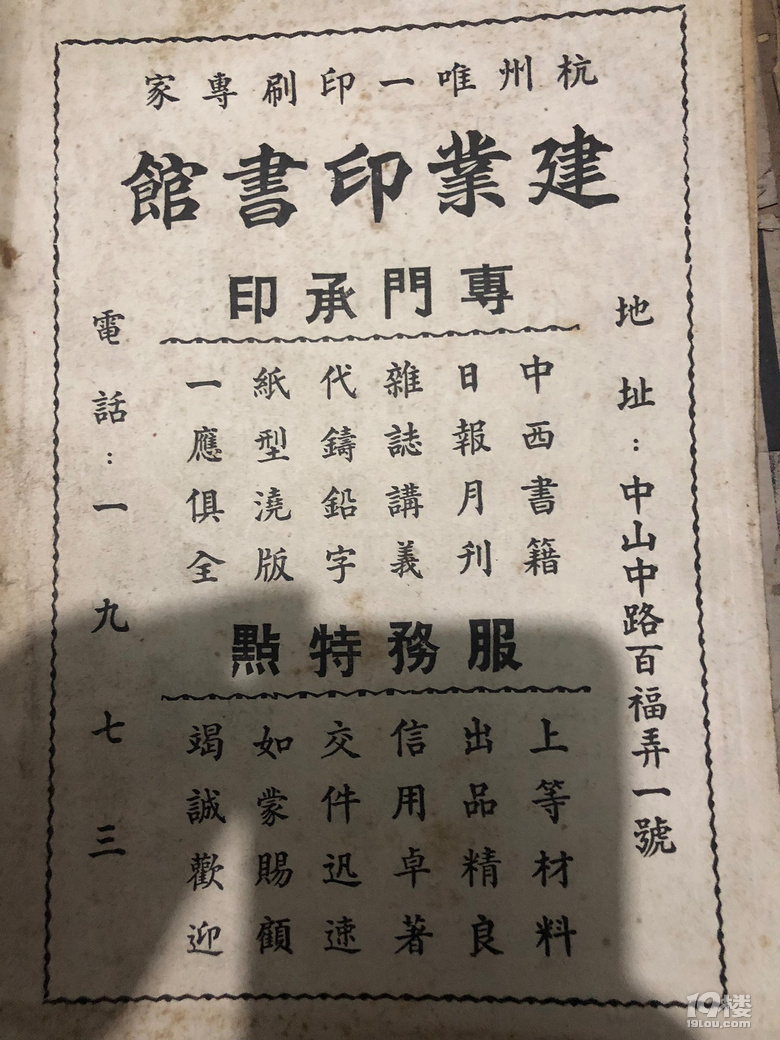 杭州唯一印刷專家
建業印書館
地址：中山中路百福弄一號
專門承印
中西書籍
日報月刊
雜誌講義
代鑄鉛字
紙型澆版
一應俱全
服務特點
上等材料
出品精良
信用卓著
交件迅速
如蒙賜顧
竭誠歡迎
電話：一九七三
19楼
19lou.com